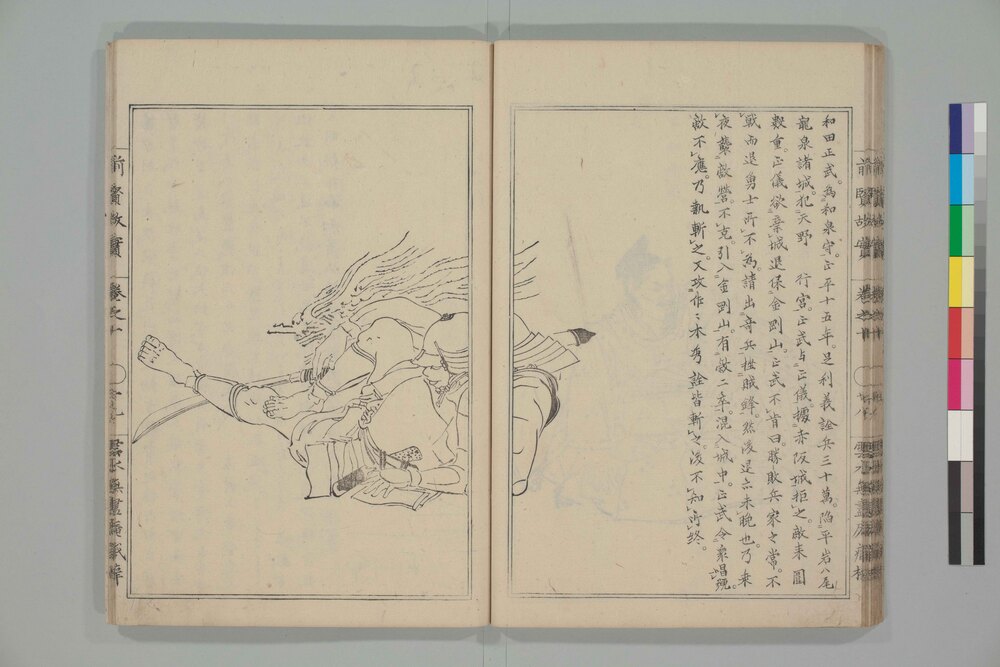 和田正武。為和泉守。正平十五年。足利義詮兵三十萬。陷平岩八尾
龍泉諸城。犯天野　行宮。正武与正儀據赤阪城拒之。敵来圍
數重。正儀欲棄城退保金剛山。正武不肯曰勝敗兵家之常。不
戰而退勇士所不為。請出奇兵挫賊鋒。然後退亦未晩也乃乗
夜襲敵營。不克。引入金剛山。有敵二卒。混入城中。正武令衆唱號。
敵不應。乃執斬之。又攻佐々木秀詮皆斬之。後不知所終。
前賢故實
巻之十
雲水無盡庵